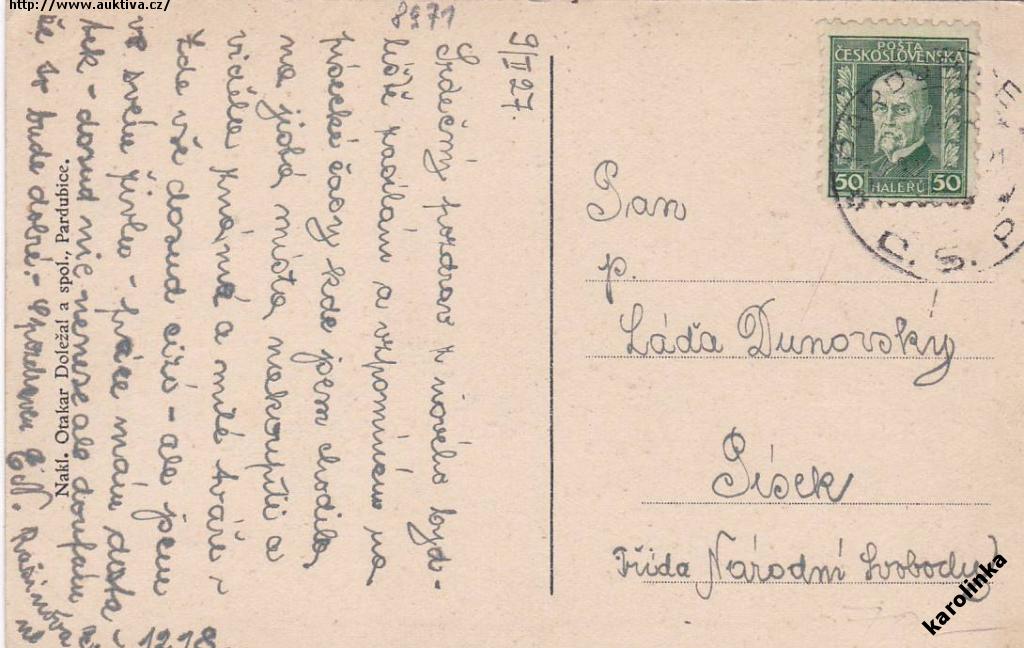 http://www.auktiva.cz/
8971
9/II 27.
Srdečný pozdrav z nového byd-
liště zasílám a vzpomínám na
písecké časy kde jsem chodila
na jistá místa nakoupiti a
viděla známé a milé tváře -
Zde vše dosud cizé - ale jsem
ve svém živlu - práce mám dosta
tek - dosud nic nenese ale doufám
že to bude dobré. -
Nakl. Otakar Doležal a spol., Pardubice.
1218
POŠTA
ČESKOSLOVENSKÁ
50 HALERŮ 50
Č. S. P.
Pan
p.
Láďa Dunovský
Písek
Třída Národní Svobody
karolinka